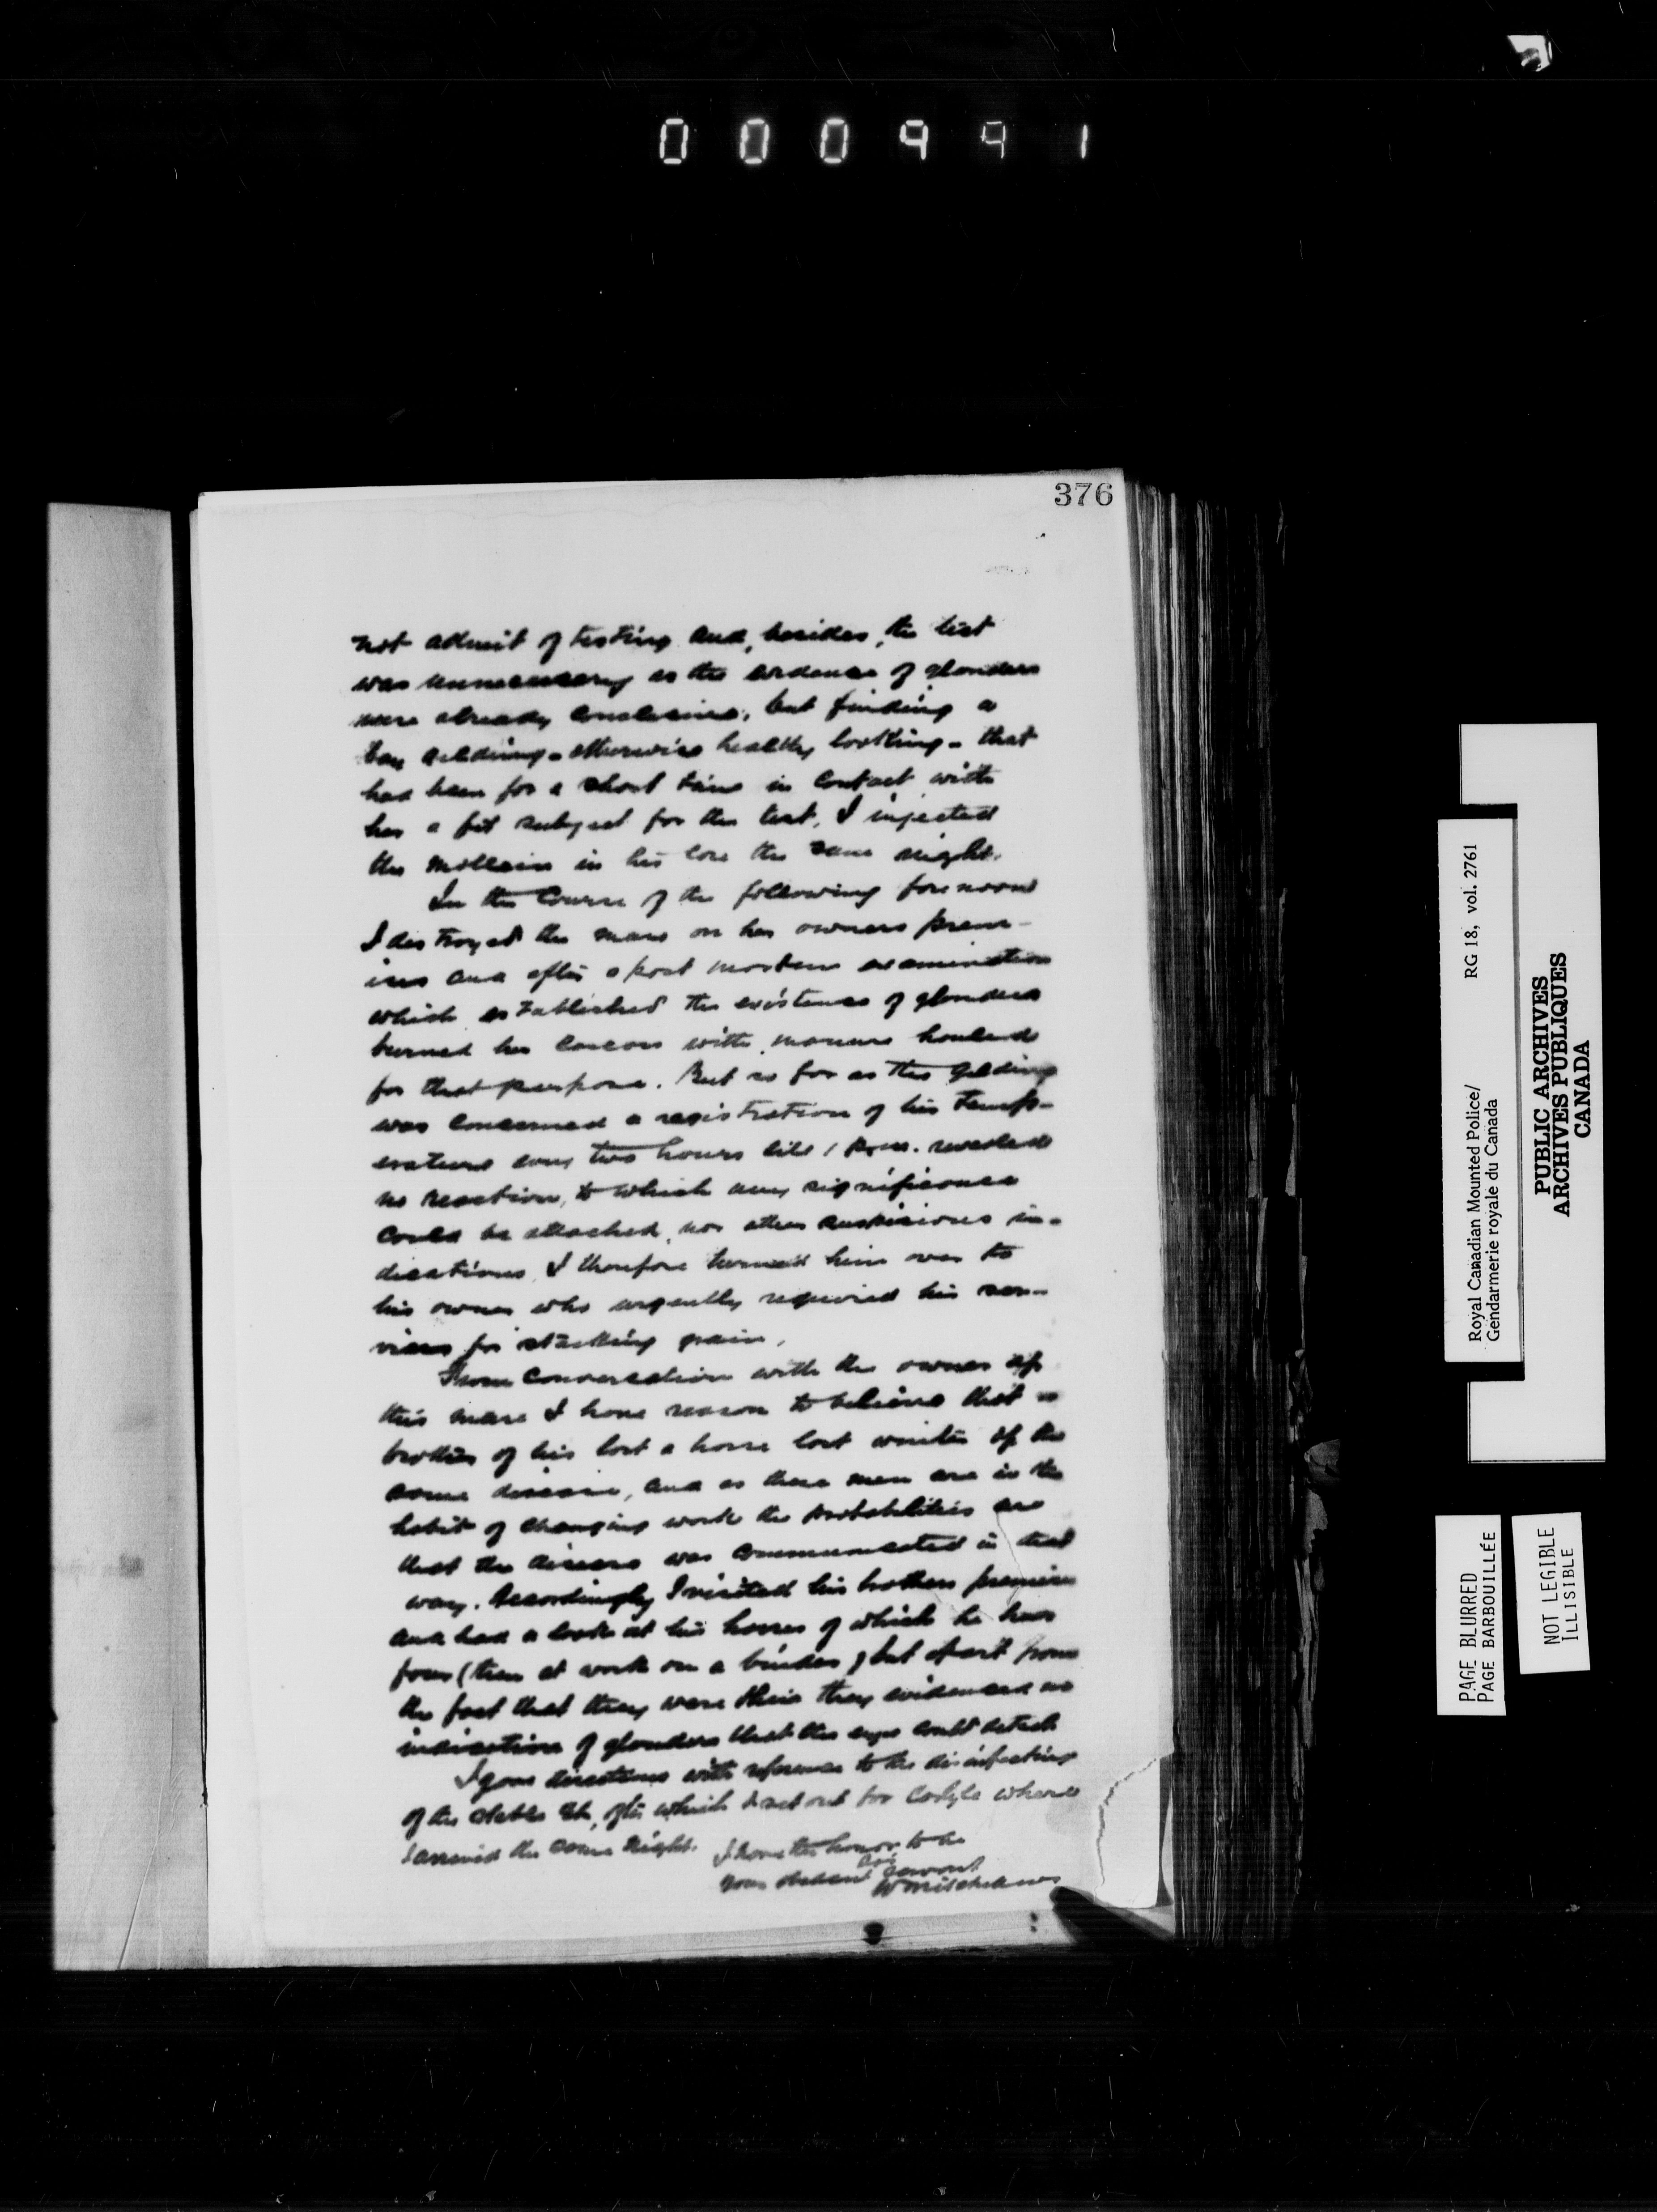 000991
376
not admit of testing and, besides, the test
was unnecessary as the evidence of glanders
were already conclusive, but finding a
bay gelding - otherwise healthy looking - that
had been for a short time in contact with
her a fit subject for the test, I injected
the mallein in his case the same night.
In the course of the following forenoon
I destroyed the mare on her owners prem-
ises and after a post mortem examination
which established the existence of glanders
burned her carcass with manure hauled
for that purpose. But so far as the gelding
was concerned a registration of his temp-
eratures every two hours till 1 p.m. revealed
no reaction, to which any significance
could be attached, nor other suspicious in-
dications, I therefore turned him over to
his owner who urgently required his ser-
vices for stacking grain.
From conversation with the owner of
this mare I have reason to believe that a
brother of his lost a horse last winter of the
same disease, and as these men are in the
habit of changing work the probabilities are
that the disease was communicated in that
way. Accordingly I visited his brothers premises
and had a look at his horses of which he has
four (then at work on a binder) but apart from
the fact that they were thin they evidenced no
indication of glanders that the eye could detect.
I gave directions with reference to the disinfecting
of the stable etc, after which I set out for Carlyle where
I arrived the same night. I have the honor to be
Sir
Your obedient servant
Royal Canadian Mounted Police/
Gendarmerie royale du Canada
RG 18, vol. 2761
PUBLIC ARCHIVES
ARCHIVES PUBLIQUES
CANADA
PAGE BLURRED
PAGE BARBOUILLÉE
NOT LEGIBLE
ILLISIBLE